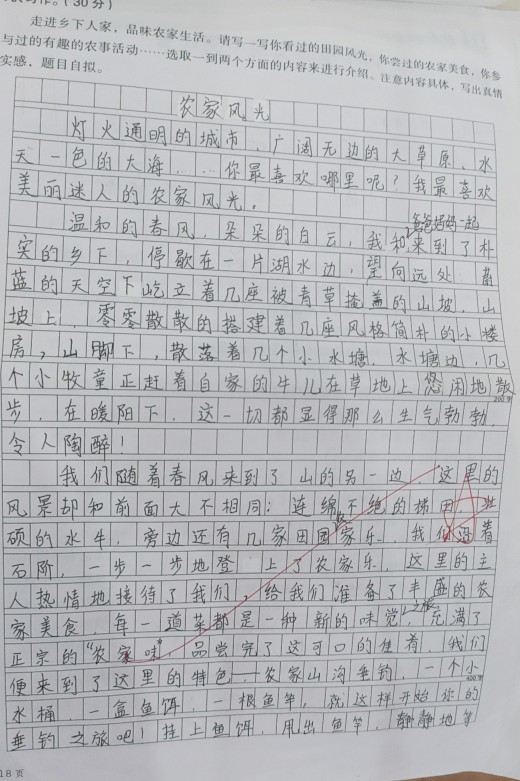 (30分)
走进乡下人家，品味农家生活。请写一写你看过的田园风光，你尝过的农家美食，你参
与过的有趣的农事活动……选取一到两个方面的内容来进行介绍。注意内容具体，写出真情
实感，题目自拟。
农家风光
灯火通明的城市，广阔无边的大草原，水
天一色的大海……你最喜欢哪里呢？我最喜欢
美丽迷人的农家风光。
爸爸妈妈一起
温和的春风，朵朵的白云，我和来到了朴
实的乡下，停歇在一片湖水边，望向远处，蔚
蓝的天空下屹立着几座被青草掩盖的山坡，山
坡上，零零散散的搭建着几座风格简朴的小楼
房，山脚下，散落着几个小水塘，水塘边，几
个小牧童正赶着自家的牛儿在草地上悠闲地散
200字
步，在暖阳下，这一切都显得那么生气勃勃，
令人陶醉！
我们随着春风来到了山的另一边，这里的
风景却和前面大不相同：连绵不绝的梯田，壮
硕的水牛，旁边还有几家田园农家乐，我们沿着
石阶，一步一步地登上了农家乐，这里的主
人热情地接待了我们，给我们准备了丰盛的农
家美食，每一道菜都是一种新的味觉之旅，充满了
正宗的“农家味”，品尝完了这可口的佳肴，我们
便来到了这里的特色——农家山沟垂钓，一个小
400字
水桶，一盒鱼饵，一根鱼竿，就这样开始你的
垂钓之旅吧！挂上鱼饵，甩出鱼竿，静静地等
18页